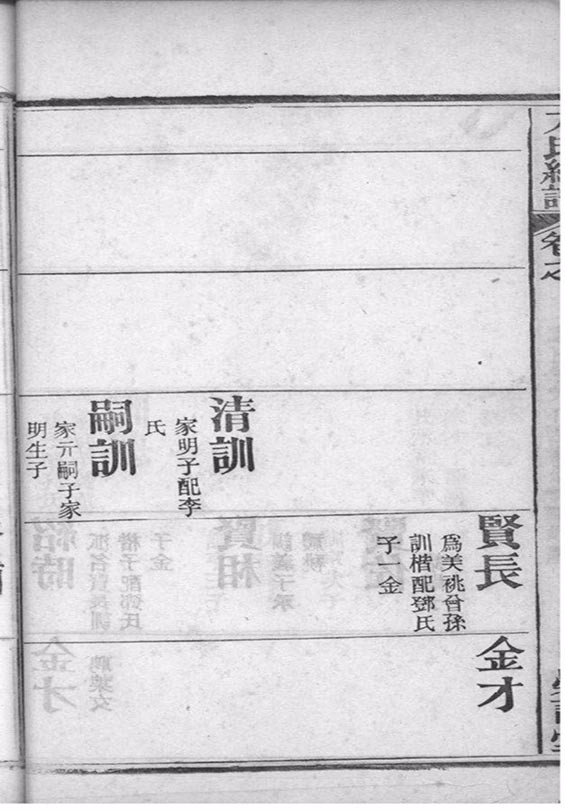 氏總譜
卷之
清訓
家明子配李
氏
嗣訓
家亓嗣子家
明生子
賢長
爲美祧曾孫
訓楷配鄧氏
子一金
金才